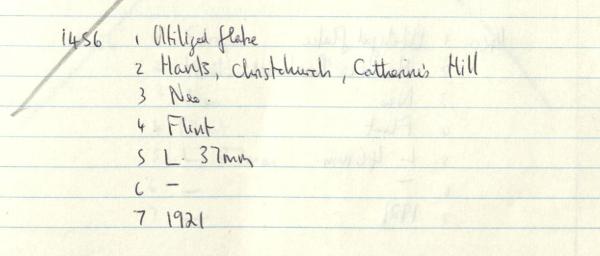 1456 1 Utilized flake
2 Hants, Christchurch, Catherines Hill
3 Neo.
4 Flint
5 L. 37mm
6 –
7 1921